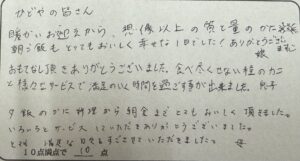 かどやの皆さん
暖かいお迎えから、想像以上の質と量のかにお料理
朝ご飯もとてもおいしく幸せな1日でした!ありがとうござい
ました 娘
おもてなし頂きありがとうございました。食べ尽くせない程のカニ
と様々なサービスで満足のいく時間を過ごす事が出来ました。息子
夕飯のかに料理から朝食までとてもおいしく頂きました。
いろいろとサービスしていただきありがとうございました。
満足な日をすごさせていただきました。 母
10点満点で 10 点